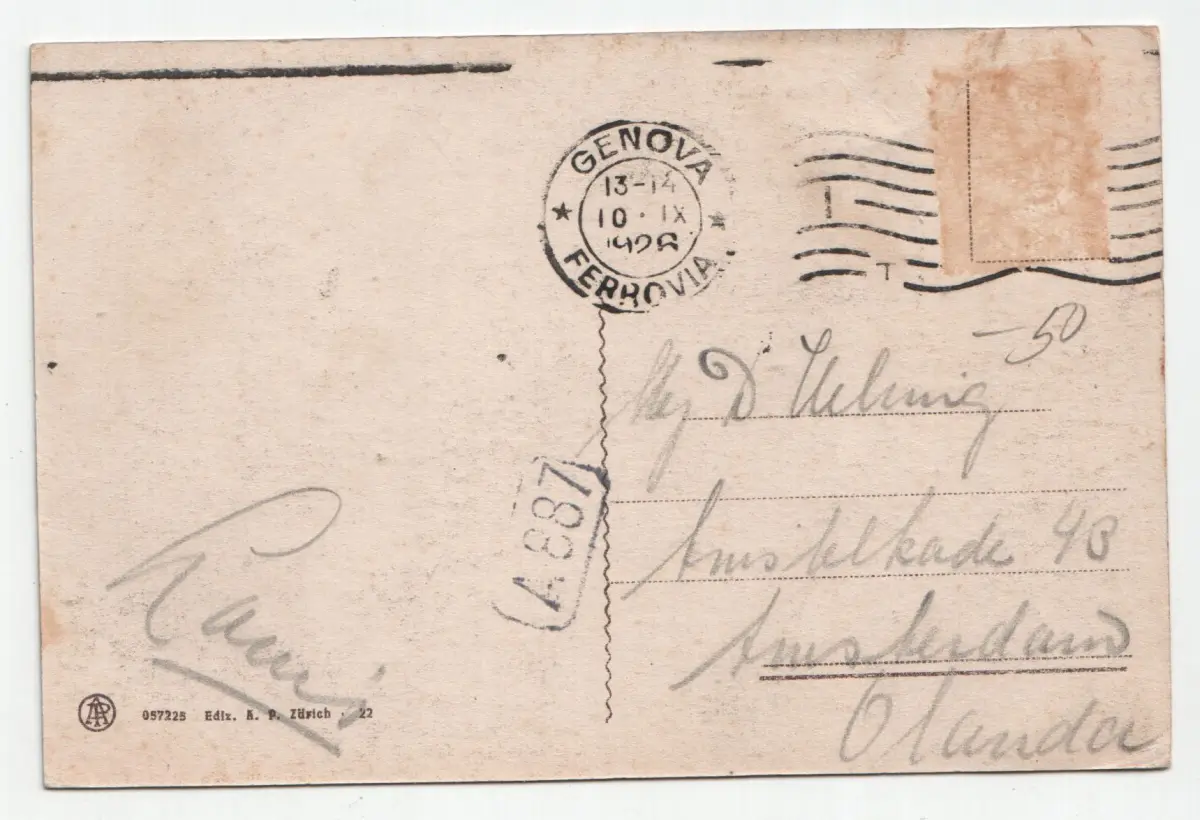 GENOVA
13-14
10 · IX
1926
FERROVIA
T
-50
D
A 887
Amstelkade 43
Amsterdam
Olanda
057225 Ediz. A. P. Zürich . 22